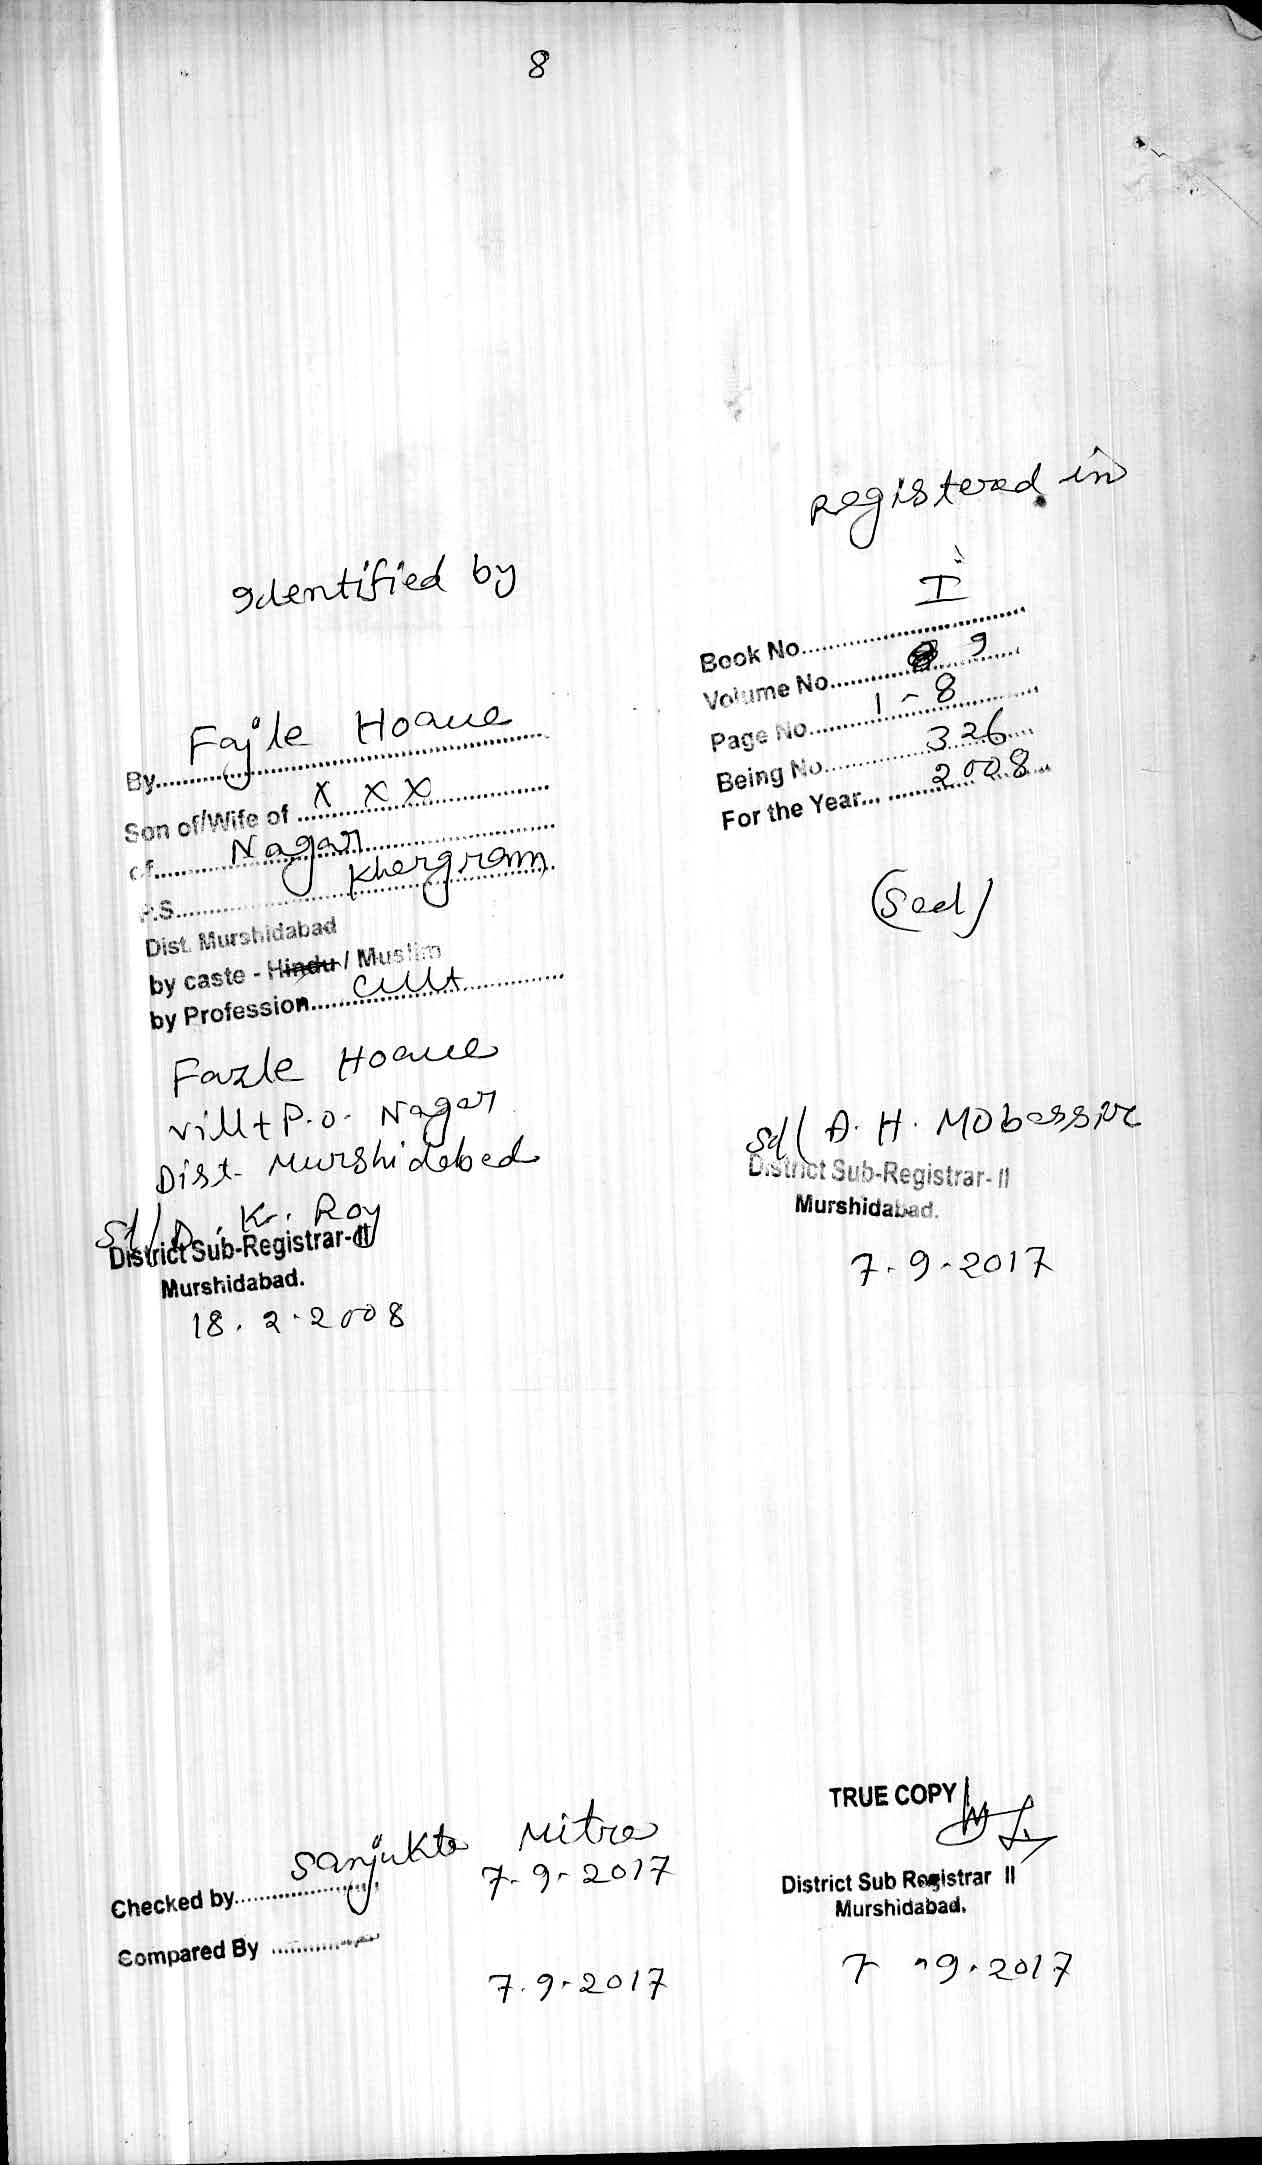 8
Identified by
By Fajle Hoque
Son of/Wife of X X X
of Nagar
P.S. Khargram
Dist. Murshidabad
by caste - Hindu / Muslim
by Profession Cult
Fazle Hoque
Vill + P.O. Nagar
Dist - Murshidabad
Sd/ D. Kr. Roy
District Sub-Registrar-II
Murshidabad.
18.2.2008
Registered in
Book No. I
Volume No. 9
Page No. 1-8
Being No. 326
For the Year 2008
(Seal)
Sd/ A. H. Mobassir
District Sub-Registrar-II
Murshidabad.
7-9-2017
Checked by Sanjukta Mitra
7-9-2017
Compared By
7.9.2017
TRUE COPY
District Sub Registrar II
Murshidabad.
7-9.2017